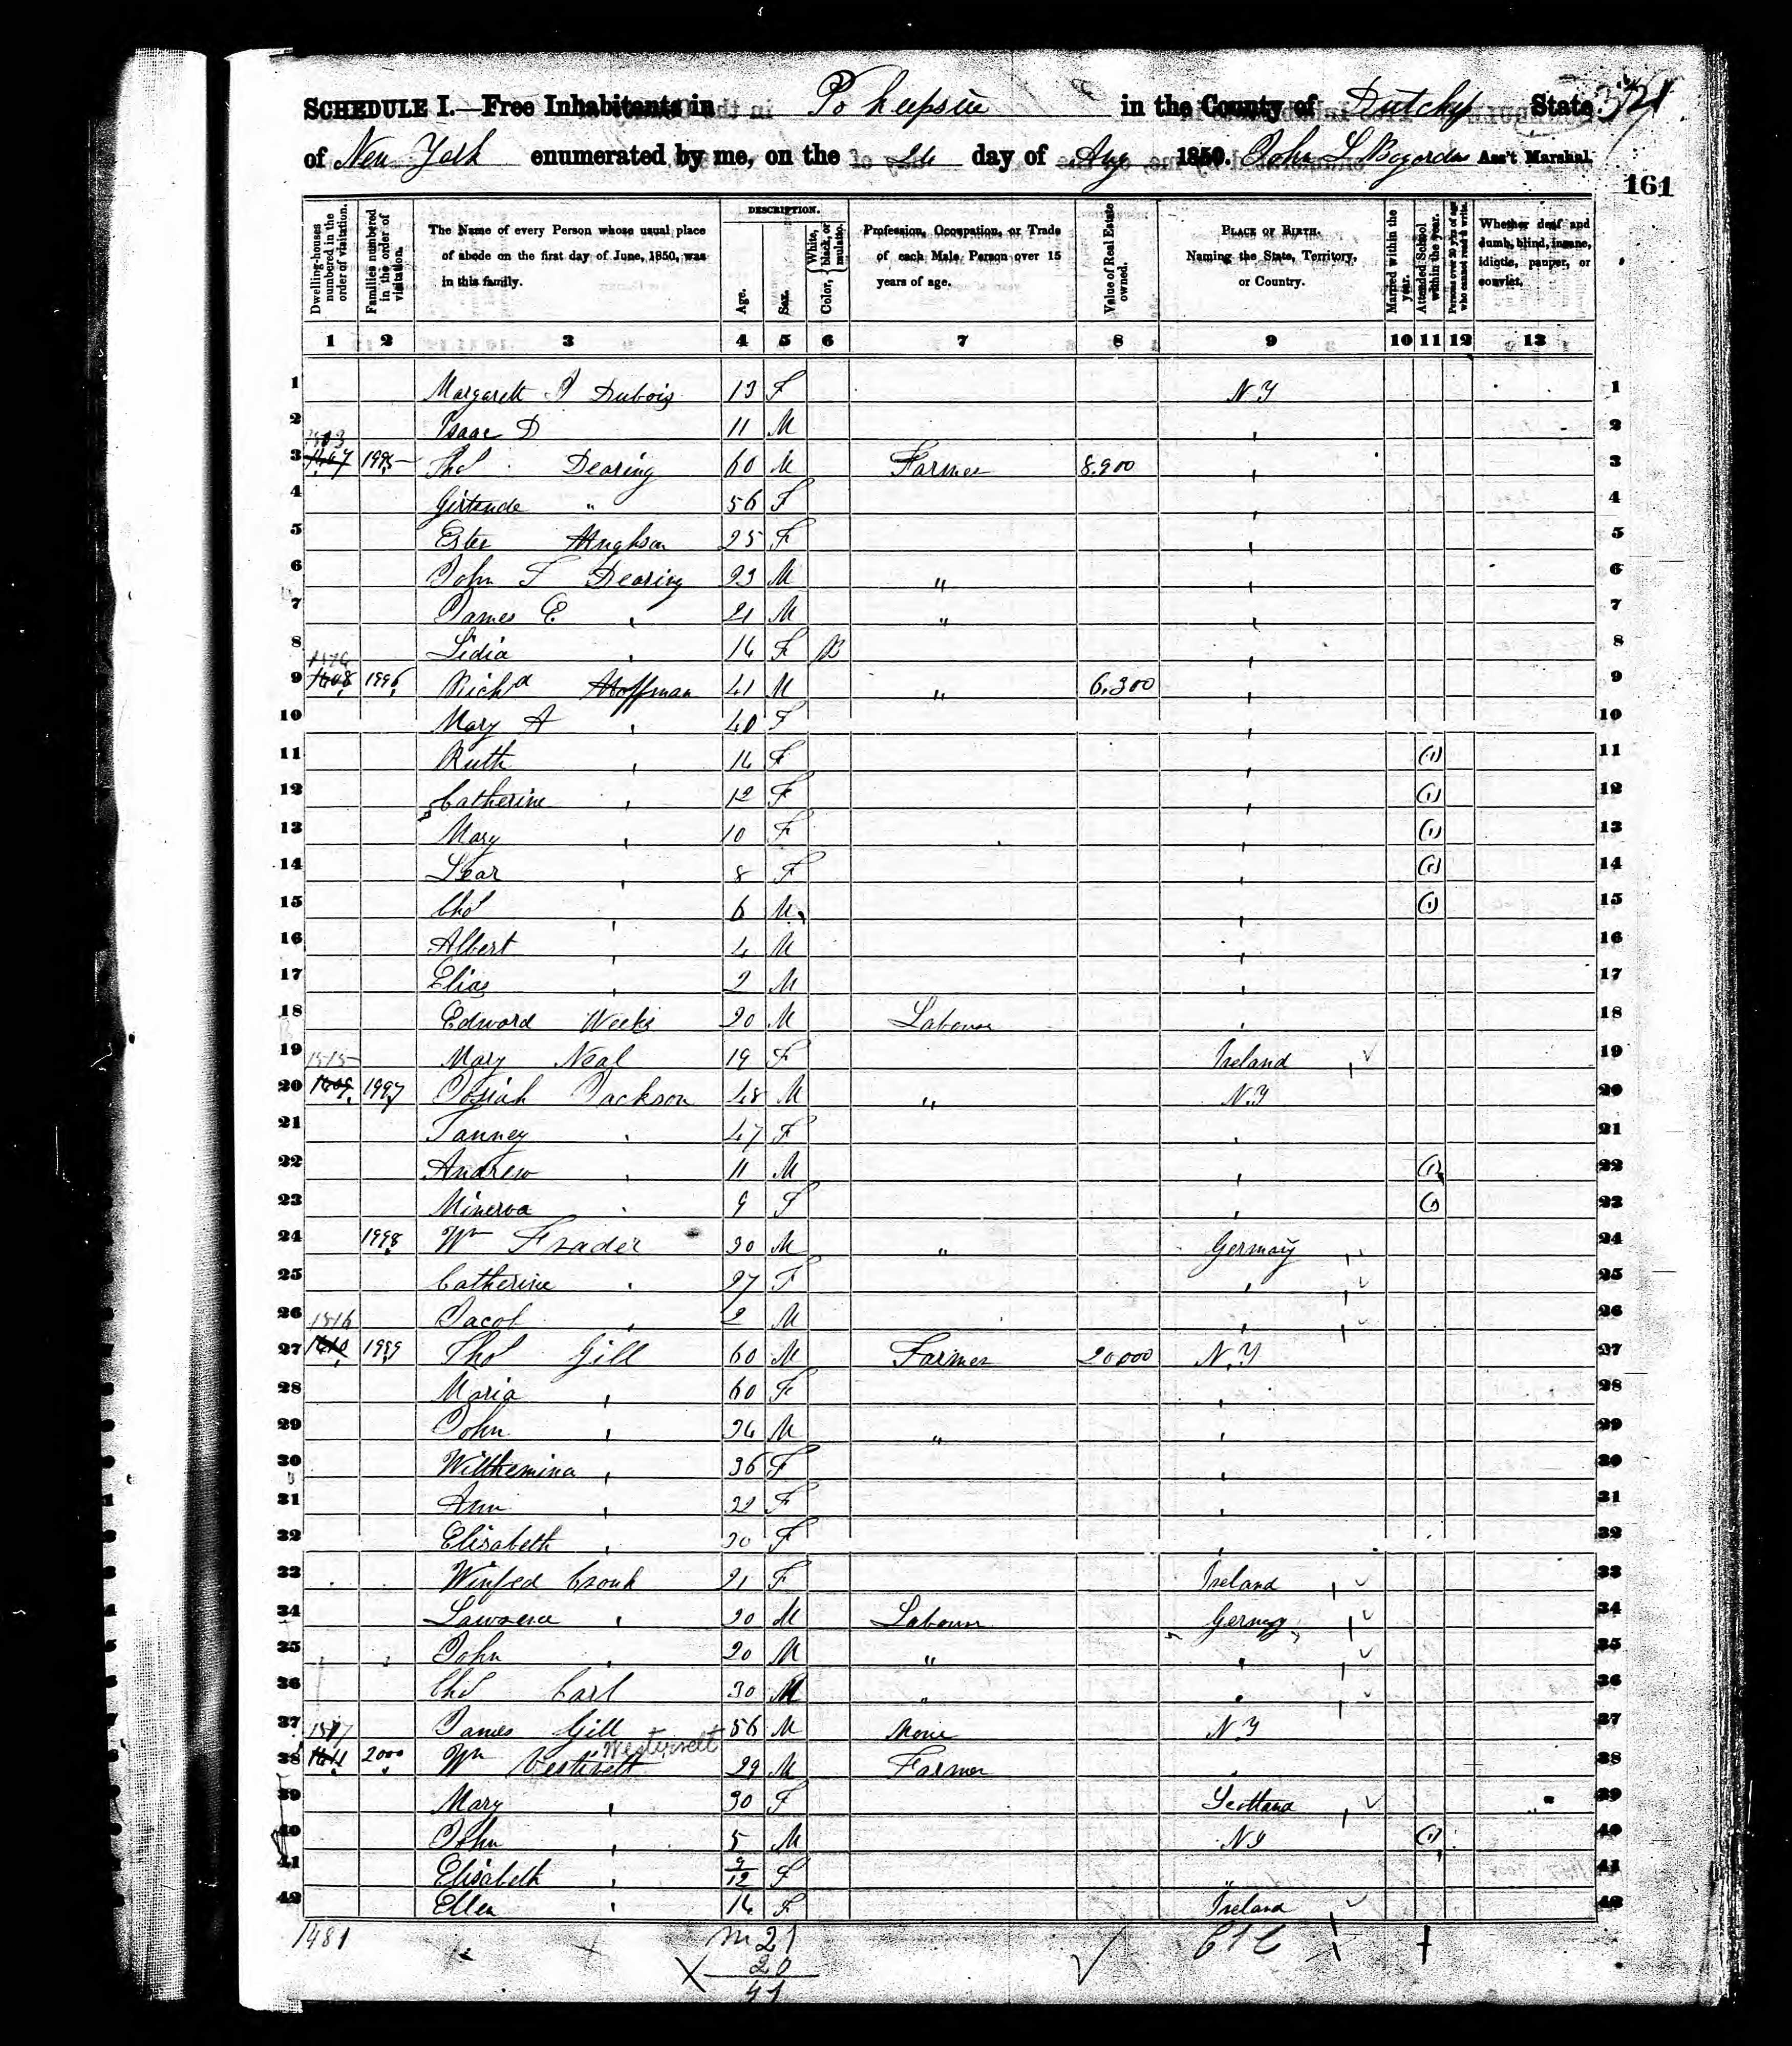 SCHEDULE I.—Free Inhabitants in Po keepsie in the County of Dutchess State 321
of New York enumerated by me, on the 26 day of Aug 1850. John L Bogardus Ass't Marshal.
161
Dwelling-houses numbered in the order of visitation.
Families numbered in the order of visitation.
The Name of every Person whose usual place of abode on the first day of June, 1850, was in this family.
DESCRIPTION.
Age.
Sex.
Color, { White, black, or mulatto.
Profession, Occupation, or Trade of each Male Person over 15 years of age.
Value of Real Estate owned.
PLACE OF BIRTH.
Naming the State, Territory, or Country.
Married within the year.
Attended School within the year.
Persons over 20 y'rs of age who cannot read & write.
Whether deaf and dumb, blind, insane, idiotic, pauper, or convict.
1 2 3 4 5 6 7 8 9 10 11 12 13
1 Margarett Dubois 13 F N Y 1
2 Isaac D 11 M ' 2
1513
3 1607 1995 Thos Dearing 60 M Farmer 8.900 ' 3
4 Gertrude " 56 F ' 4
5 Ester Hughson 25 F ' 5
6 John T Dearing 23 M " ' 6
7 James E ' 21 M " ' 7
8 Lidia ' 16 F B ' 8
1514
9 1608 1996 Richd Hoffman 41 M " 6.300 ' 9
10 Mary A ' 40 F ' 10
11 Ruth ' 14 F ' (1) 11
12 Catherine ' 12 F ' (1) 12
13 Mary ' 10 F ' (1) 13
14 Lear ' 8 F ' (1) 14
15 Chs ' 6 M ' (1) 15
16 Albert ' 4 M ' 16
17 Elias ' 2 M ' 17
18 Edward Weeks 20 M Labourer ' 18
19 Mary Neal 19 F Ireland 19
1515
20 1609 1997 Josiah Jackson 48 M " N.Y 20
21 Fanney ' 47 F ' 21
22 Andrew ' 11 M ' (1) 22
23 Minerva ' 9 F ' (1) 23
24 1998 Wm Frader 30 M " Germay 24
25 Catherine ' 27 F ' 25
26 Jacob ' 2 M ' 26
1516
27 1610 1999 Thos Gill 60 M Farmer 20000 N.Y 27
28 Maria ' 60 F ' 28
29 John ' 34 M " ' 29
30 Wilhemina ' 36 F ' 30
31 Ann ' 32 F ' 31
32 Elisabeth ' 30 F ' 32
33 Winfed Cronk 21 F Ireland 33
34 Lawrence ' 20 M Labourer Germy 34
35 John ' 20 M " ' 35
36 Chs Carl 30 M " ' 36
37 James Gill 56 M None N.Y 37
1517 Westervelt
38 1611 2000 Wm Vestivelt 29 M Farmer ' 38
39 Mary ' 30 F Scottland 39
40 John ' 5 M N Y (1) 40
41 Elisabeth ' 9/12 F " 41
42 Ellen ' 14 F Ireland 42
1481
m 21
20
41